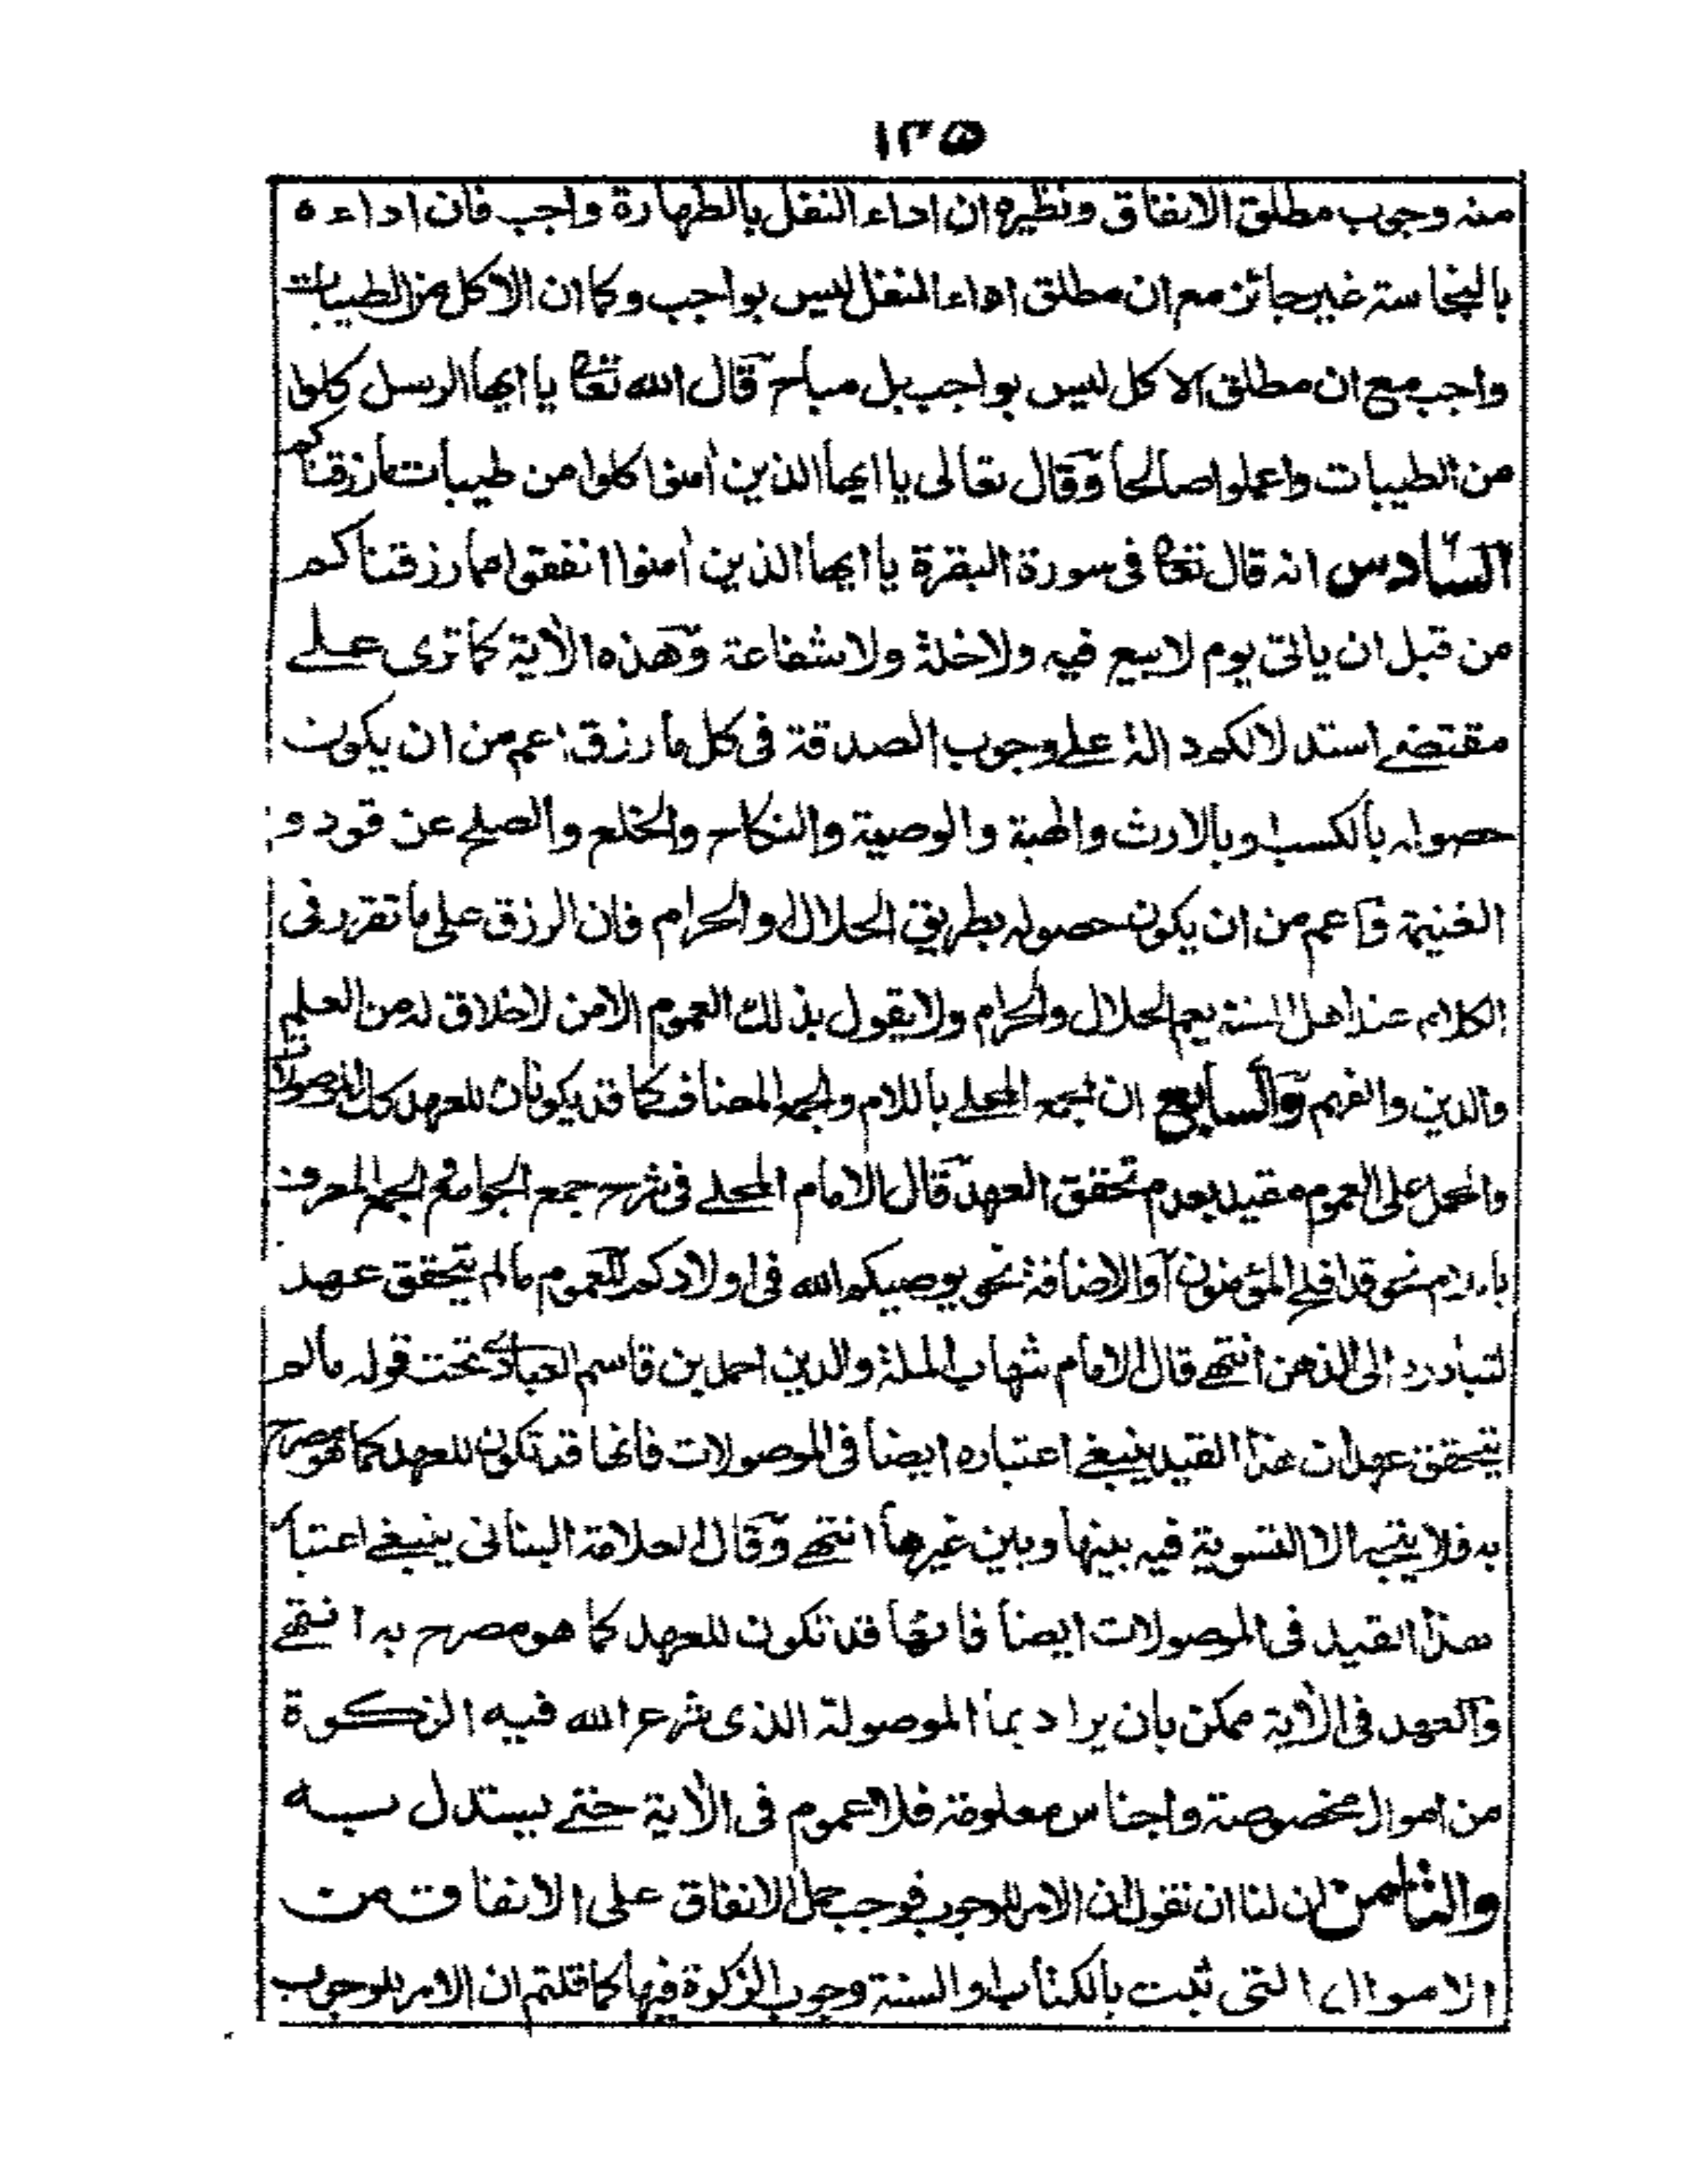 ١٣٥
منه وجوب مطلق الانفاق ونظيره ان اداء النفل بالطهارة واجب فان اداءه
بالنجاسة غير جائز مع ان مطلق اداء النفل ليس بواجب وكما ان الاكل من الطيبات
واجب مع ان مطلق الاكل ليس بواجب بل مباح قال الله تعا يا ايها الرسل كلوا
من الطيبات واعملوا صالحا وقال تعالى يا ايها الذين اٰمنوا كلوا من طيبات ما رزقناكم
السادس انه قال تعا فى سورة البقرة يا ايها الذين اٰمنوا انفقوا مما رزقناكم
من قبل ان ياتى يوم لا بيع فيه ولا خلة ولا شفاعة وهذه الاٰية كما ترى على
مقتضى استدلالكم دالة على وجوب الصدقة فى كل ما رزق اعم من ان يكون
حصوله بالكسب او بالارث والهبة والوصية والنكاح والخلع والصلح عن قود و
الغنيمة واعم من ان يكون حصوله بطريق الحلال والحرام فان الرزق على ما تقرر فى
الكلام عند اهل السنة يعم الحلال والحرام ولا يقول بذلك العموم الا من لا خلاق له من العلم
والدين والفهم والسابع ان الجمع المحلى باللام والجمع المضاف كما قد يكونان للعهد كذلك الموصولات
والحمل على العموم مقيد بعدم تحقق العهد قال الامام المحلى فى شرح جمع الجوامع الجمع المعرف
باللام نحو قد افلح المؤمنون او الاضافة نحو يوصيكم الله فى اولادكم للعموم ما لم يتحقق عهد
لتبادره الى الذهن انتهى قال الامام شهاب الملة والدين احمد بن قاسم العبادى تحت قوله ما لم
يتحقق عهد ان هذا القيد ينبغى اعتباره ايضا فى الموصولات فانها قد تكون للعهد كما هو مصرح
به فلا يتجه الا التسوية فيه بينها وبين غيرها انتهى وقال العلامة البنانى ينبغى اعتبار
هذا القيد فى الموصولات ايضا فانها قد تكون للعهد كما هو مصرح به انتهى
والعهد فى الاٰية ممكن بان يراد بما الموصولة الذى شرع الله فيه الزكوة
من اموال مخصوصة واجناس معلومة فلا عموم فى الاٰية حتى يستدل به
والثامن ان لنا ان نقول ان الامر للوجوب فوجب حمل الانفاق على الانفاق من
الاموال التى ثبت بالكتاب او السنة وجوب الزكوة فيها كما قلتم ان الامر للوجوب